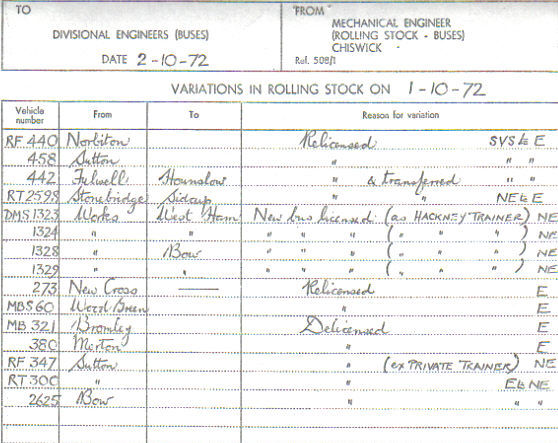 TO
"FROM"
DIVISIONAL ENGINEERS (BUSES)
MECHANICAL ENGINEER
(ROLLING STOCK - BUSES)
CHISWICK
DATE 2-10-72
Ref. 508/1
VARIATIONS IN ROLLING STOCK ON 1-10-72
Vehicle number From To Reason for variation
RF 440 Norbiton Relicensed SVS to E
458 Sutton " " "
442 Fulwell Hounslow " & transferred " "
RT 2598 Stonebridge Sidcup " " NE to E
DMS 1323 Works West Ham New bus licensed (as HACKNEY TRAINER) NE
1324 " " " " " ( " " " ) NE
1328 " Bow " " " ( " " " ) NE
1329 " " " " " ( " " " ) NE
273 New Cross — Relicensed E
MBS 60 Wood Green " E
MB 321 Bromley Delicensed E
380 Merton " E
RF 347 Sutton " (ex PRIVATE TRAINER) NE
RT 300 " " E to NE
2625 Bow " " "